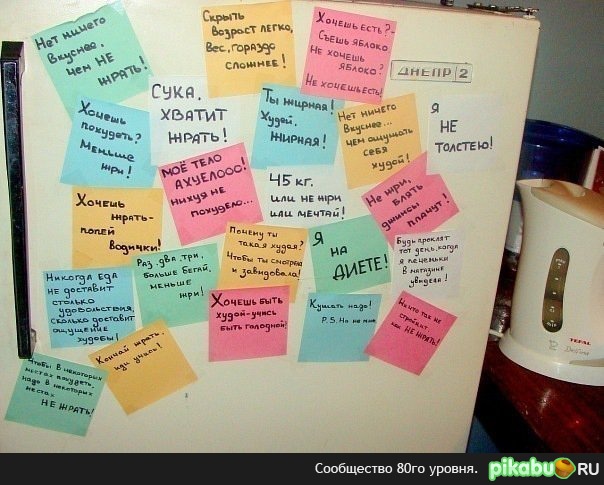 Нет ничего
вкуснее,
чем НЕ
ЖРАТЬ!
Скрыть
возраст легко,
вес, гораздо
сложнее!
Хочешь есть? -
Съешь яблоко
Не хочешь
яблоко?
Не хочешь есть!
ДНЕПР 2
Хочешь
похудеть?
Меньше
жри!
СУКА,
ХВАТИТ
ЖРАТЬ!
Ты жирная!
Худей,
ЖИРНАЯ!
Нет ничего
вкуснее...
чем ощущать
себя
худой!
Я
НЕ
ТОЛСТЕЮ!
МОЁ ТЕЛО
АХУЕЛООО!
нихуя не
похудело...
45 кг.
или не жри
или мечтай!
Не жри,
блять
джинсы
плачут!
Хочешь
жрать-
попей
водички!
Раз, два, три,
больше бегай,
меньше
жри!
Почему ты
такая худая?
Чтобы ты смотрела
и завидовала!
Я
НА
ДИЕТЕ!
Будь проклят
тот день, когда
я печеньки
в магазине
увидела!
Никогда еда
не доставит
столько
удовольствия,
сколько доставит
ощущение
худобы!
Хочешь быть
худой-учись
быть голодной!
Кушать надо!
P.S. Но не мне
Ничто так не
стройнит,
как НЕ ЖРАТЬ!
Чтобы в некоторых
местах похудеть,
надо в некоторых
местах
НЕ ЖРАТЬ!
Кончай жрать,
иди учись!
TEFAL
Сообщество 80го уровня.
pikabu.RU